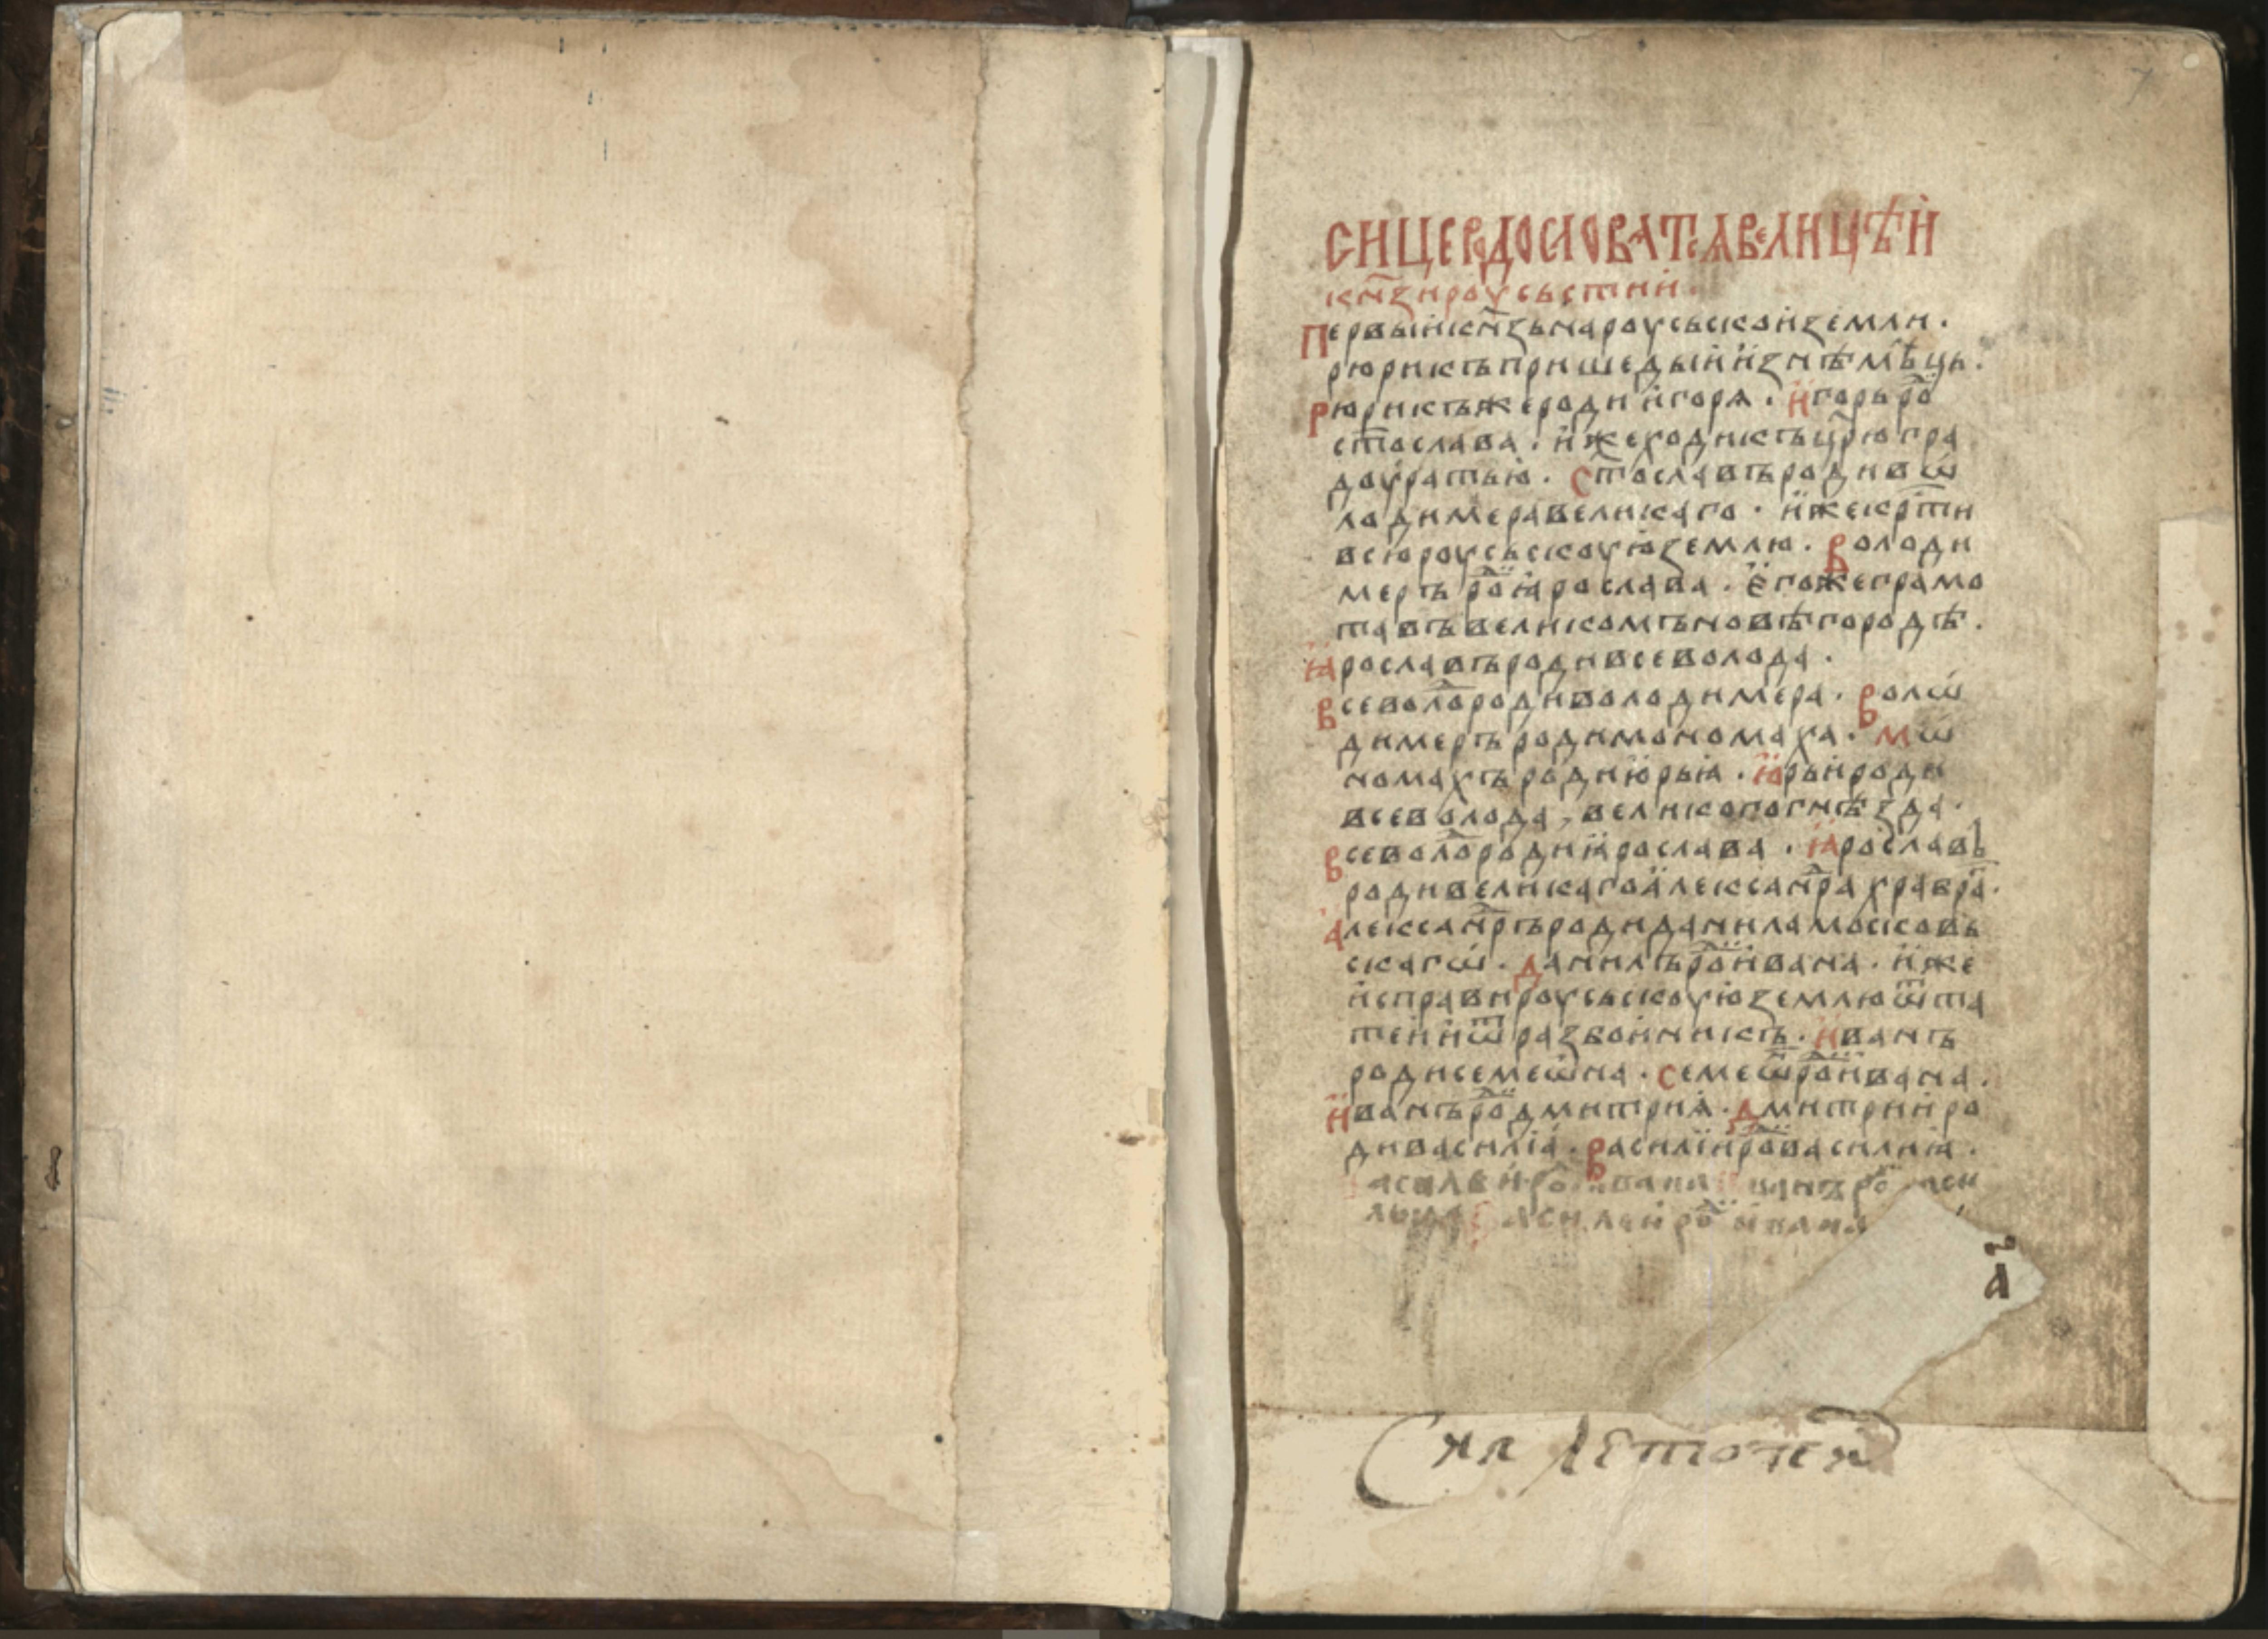 7
СИЦЕ РОДОСЛОВѦТСѦ ВЕЛИЦѢИ
кн҃зи роусьстии.
Первыи кн҃зь на роусьскои земли.
рюрикъ пришедыи из нѣмѣць.
Рюрикъ же роди игорѧ. Игорь роⷣ
ст҃ослава. иже ходи къ цр҃ю гра
доу ратью. Ст҃ославъ роди вѡ
лодимера великаго. иже кр҃ти
всю роусьскоую землю. Володи
меръ роⷣ ꙗрослава. Егоже грамо
та въ великомъ новѣгородѣ.
Ꙗрославъ роди всеволода.
Всеволоⷣ роди володимера. Волѡ
димеръ роди мономаха. Мѡ
номахъ роди юрьꙗ. Юрьи роди
всеволода, великого гнѣзда.
Всеволоⷣ роди ꙗрослава. Ꙗрославъ
роди великаго алексанⷣра храбраⷢ.
Алексанⷣръ роди данила московь
скагѡ. Данилъ роⷣ ивана. иже
исправи роусьскоую землю ѿ та
теи и ѿ разбоиникъ. Иванъ
роди семеѡна. Семеѡⷩ роⷣ ивана.
Иванъ роⷣ дмитриꙗ. Дмитрии ро
ди василіа. Василіи роⷣ василиꙗ.
асилеи роⷣ ивана иванъ роⷣ васи
льꙗ асилеи роⷣ ивана
а҃
Сиа летопеⷭ